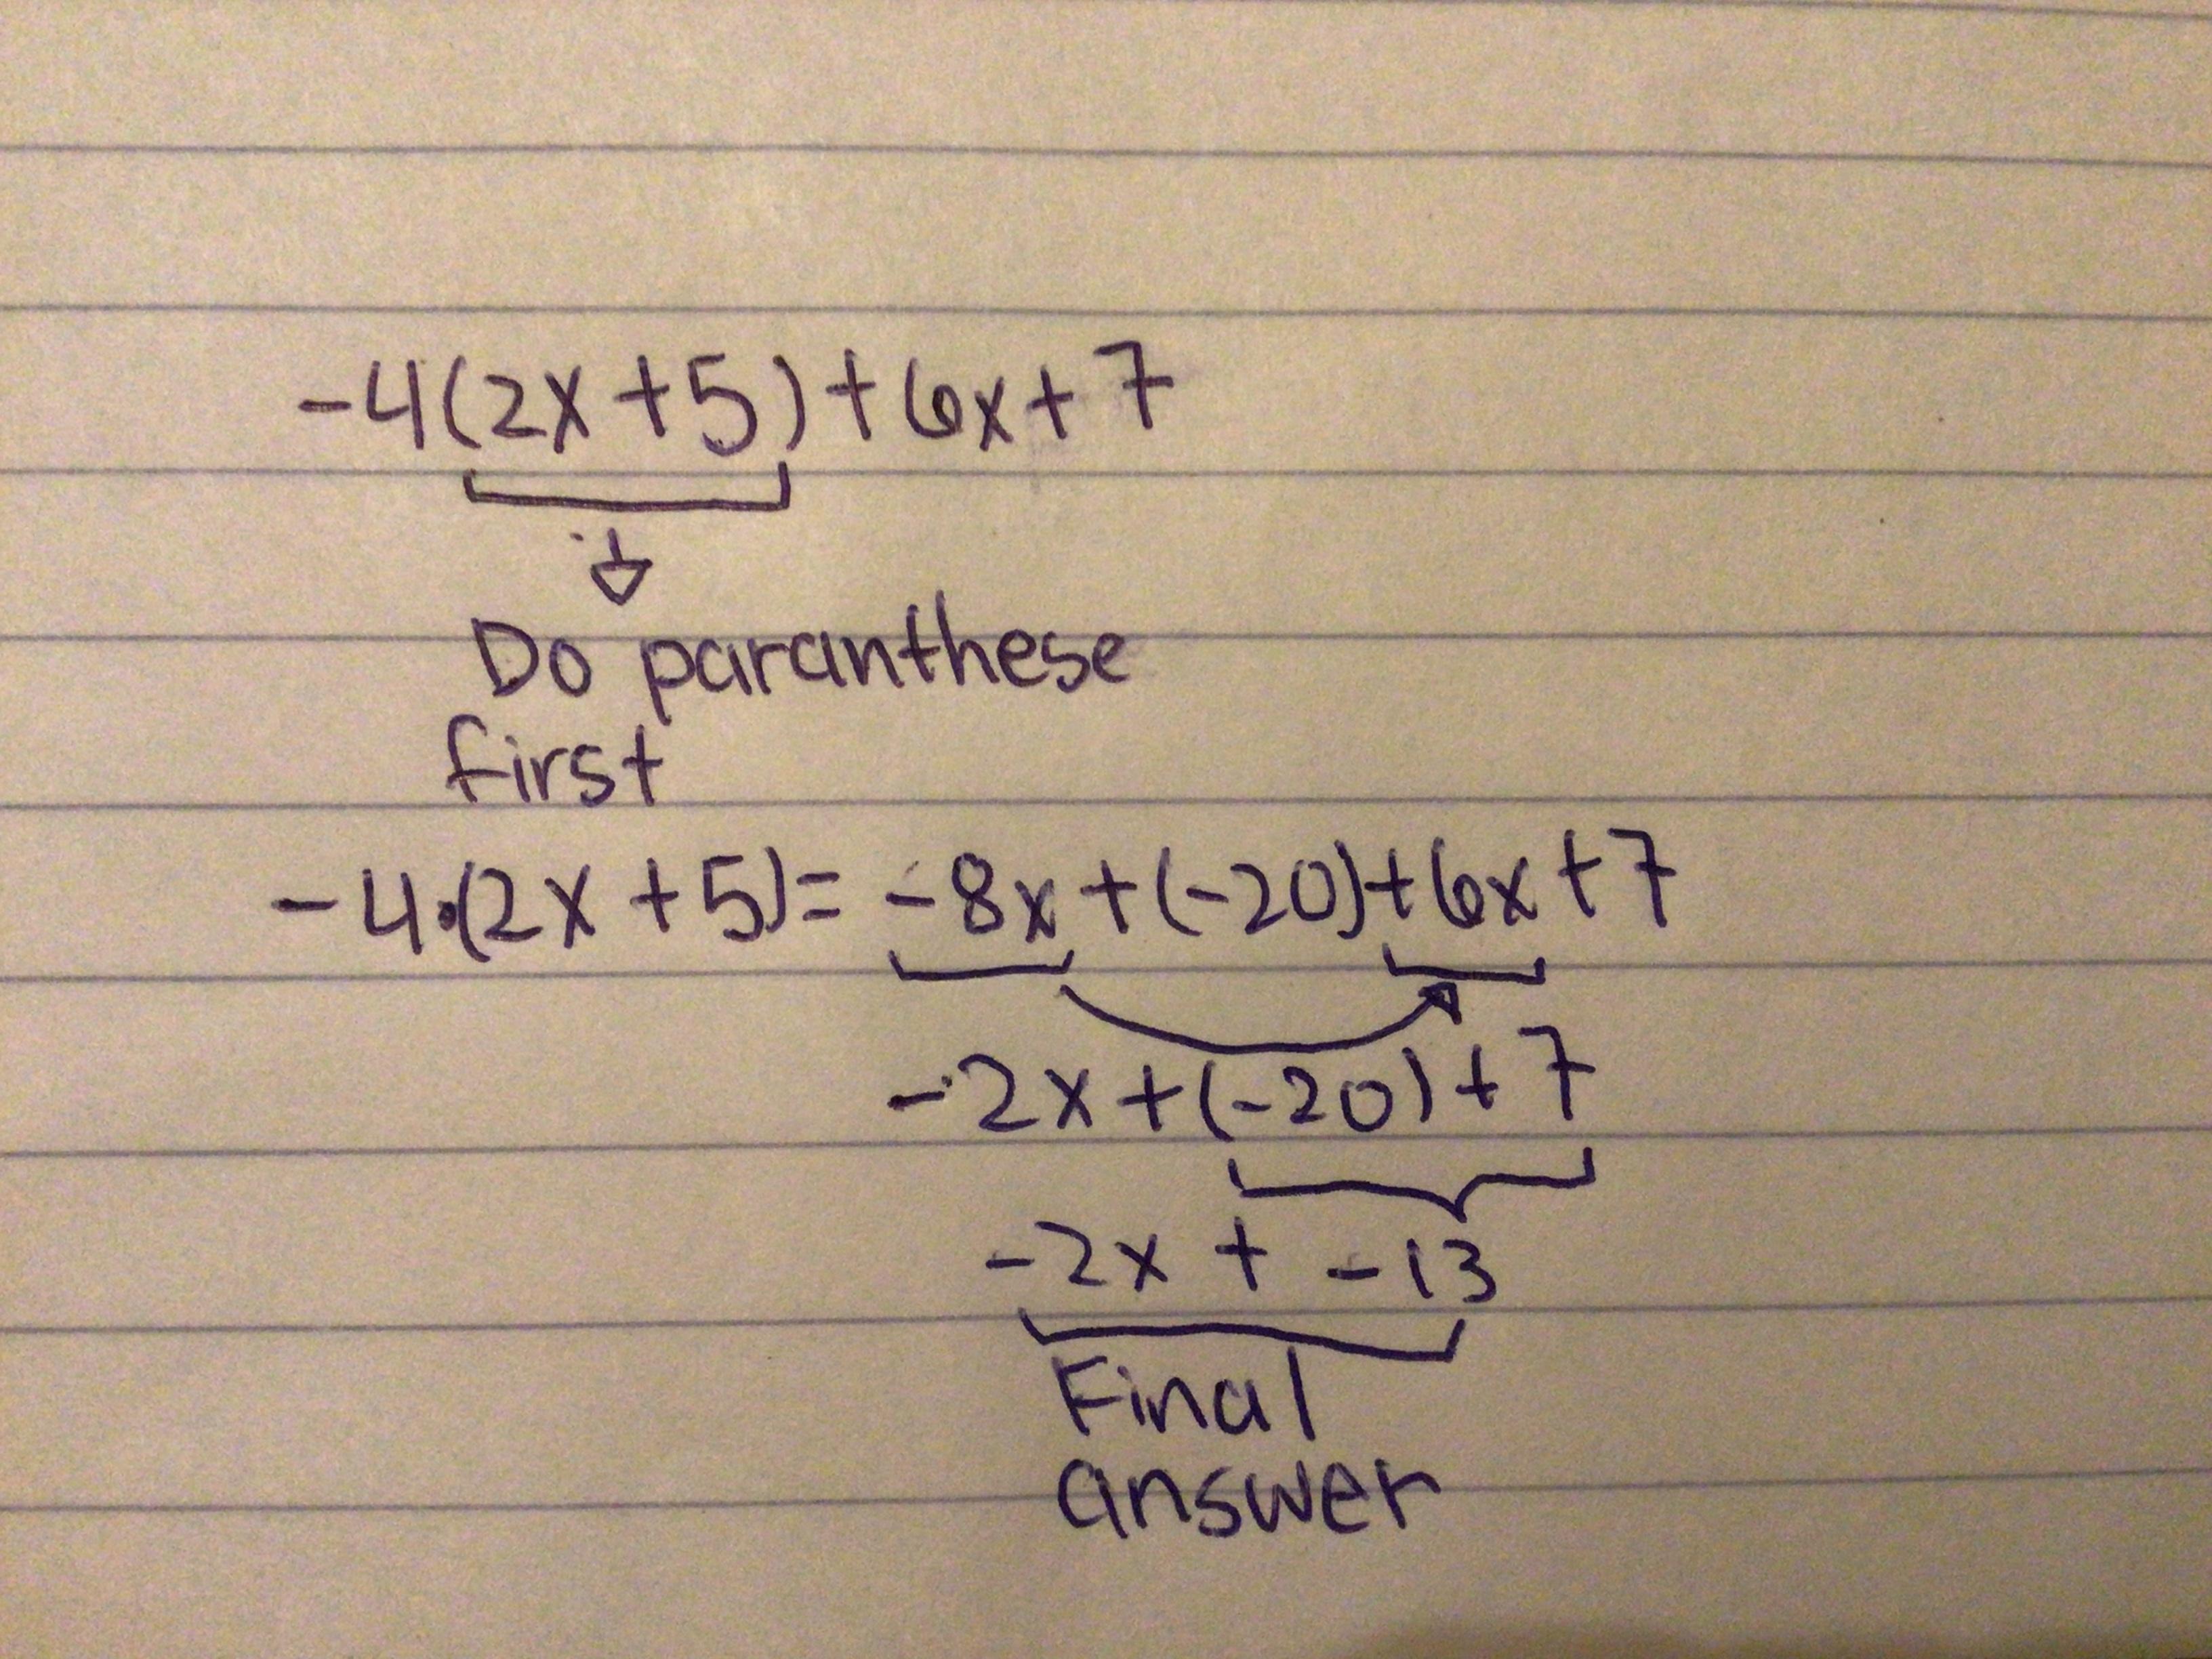 -4(2x+5)+6x+7
Do paranthese
first
-4•(2x+5)= -8x+(-20)+6x+7
-2x+(-20)+7
-2x + -13
Final
answer